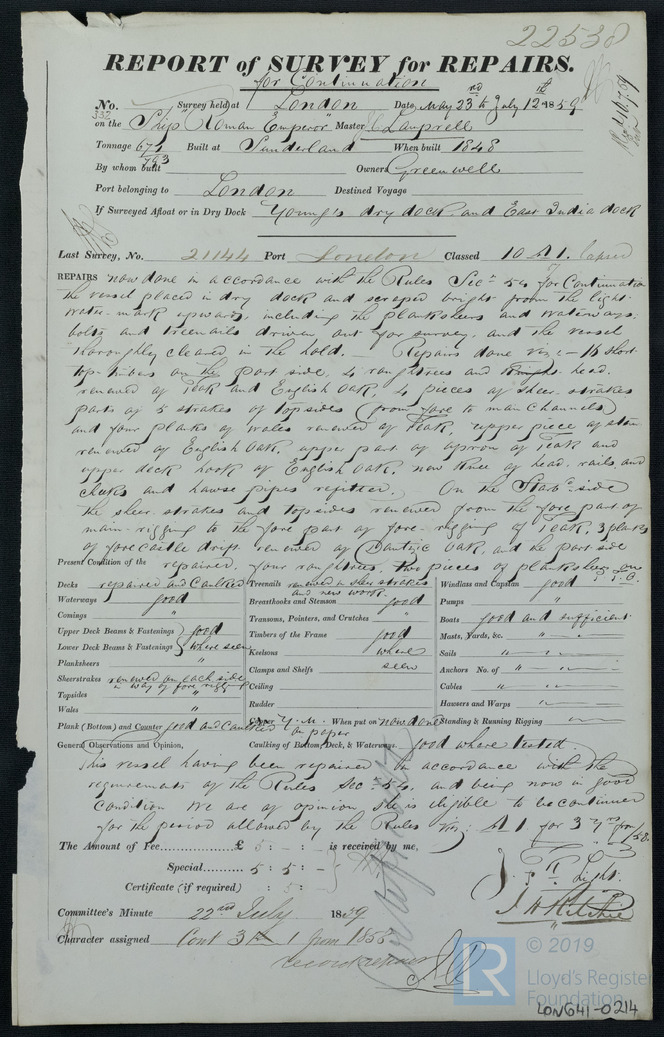 22538
REPORT of SURVEY for REPAIRS.
for Continuation
No. 332 Survey held at London Date, May 23rd to July 12th 1859
on the Ship "Roman Emperor" Master Lamprell
Tonnage 671 Built at Sunderland When built 1848
793
By whom built Owners Greenwell
Port belonging to London Destined Voyage
If Surveyed Afloat or in Dry Dock Young's dry dock and East India dock
Last Survey, No. 21144 Port London Classed 10 A 1. lapsed
REPAIRS now done in accordance with the Rules Secn 54 for Continuation
the vessel placed in dry dock and scraped bright from the light
water-mark upwards, including the planksheers and waterways;
bolts and treenails driven out for survey, and the vessel
thoroughly cleared in the hold. — Repairs done viz :— 16 short
top-timbers on the port side, 4 roughtrees and knight-head
renewed of Teak and English Oak, 4 pieces of sheer-strakes
parts of 5 strakes of topsides (from fore to main channels)
and four planks of wales renewed of Teak, upper piece of stem
renewed of English Oak, upper part of apron of Teak and
upper deck hook of English Oak, new knee of head-rails, and
cheeks and hawse pipes refitted. On the Starbd side
the sheer-strakes and topsides renewed from the fore part of
main-rigging to the fore part of fore-rigging of Teak, 3 planks
of forecastle drift renewed of Dantzic Oak, and the port side
repaired. four roughtrees, two pieces of planksheer
Present Condition of the
Decks repaired and Caulked Treenails renewed in sheer strakes and new work. Windlass and Capstan good
Waterways good Breasthooks and Stemson good Pumps "
Comings " Transons, Pointers, and Crutches Boats good and sufficient
Upper Deck Beams & Fastenings } good Timbers of the Frame good Masts, Yards, &c. "
Lower Deck Beams & Fastenings } where seen Keelsons where Sails "
Planksheers " Clamps and Shelfs seen Anchors No. of "
Sheerstrakes renewed on each side in way of fore rigging Ceiling Cables "
Topsides Rudder Hawsers and Warps "
Wales "
Plank (Bottom) and Counter good and Caulked Copper Y.M. on paper When put on now done Standing & Running Rigging "
General Observations and Opinion, Caulking of Bottom, Deck, & Waterways good where tested.
This vessel having been repaired in accordance with the
requirements of the Rules Sec. 54. and being now in good
condition We are of opinion she is eligible to be continued
for the period allowed by the Rules viz. A 1 for 3 yrs from /58.
The Amount of Fee............ £ 5 : - : is received by me,
Special....... 5 : 5 : -
Certificate (if required) : 5 :
Light.
J H Ritchie
Committee's Minute 22nd July 1859
Character assigned Cont 3 1 from 1858
record repairs
© 2019
LR
Lloyd's Register
Foundation
LON641-0214